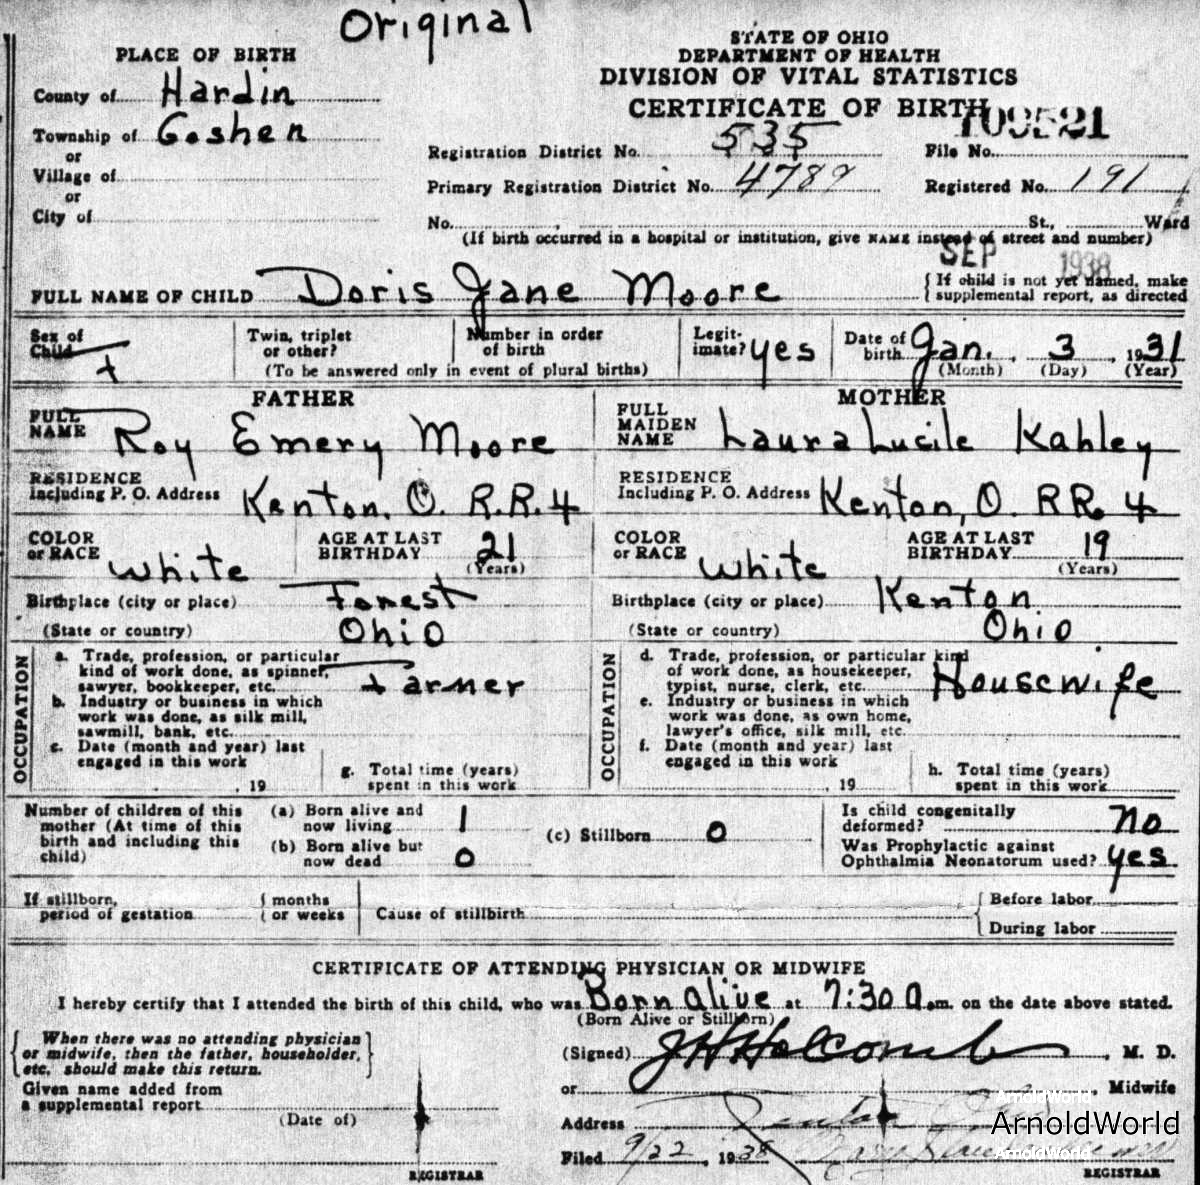 Original
STATE OF OHIO
DEPARTMENT OF HEALTH
DIVISION OF VITAL STATISTICS
CERTIFICATE OF BIRTH
109521
PLACE OF BIRTH
County of Hardin
Township of Goshen
or
Village of
or
City of
Registration District No. 535
File No.
Primary Registration District No. 4789
Registered No. 191
No. St., Ward
(If birth occurred in a hospital or institution, give NAME instead of street and number)
SEP 1938
FULL NAME OF CHILD Doris Jane Moore
{If child is not yet named, make
supplemental report, as directed
Sex of
Child f
Twin, triplet
or other?
Number in order
of birth
(To be answered only in event of plural births)
Legit-
imate? yes
Date of
birth Jan. , 3 , 1931
(Month) (Day) (Year)
FATHER
FULL
NAME Roy Emery Moore
RESIDENCE
Including P. O. Address Kenton, O. R.R. 4
COLOR
or RACE white
AGE AT LAST
BIRTHDAY 21
(Years)
Birthplace (city or place) Forest
(State or country) Ohio
OCCUPATION
a. Trade, profession, or particular
kind of work done, as spinner,
sawyer, bookkeeper, etc. Farmer
b. Industry or business in which
work was done, as silk mill,
sawmill, bank, etc.
c. Date (month and year) last
engaged in this work
, 19
g. Total time (years)
spent in this work
MOTHER
FULL
MAIDEN
NAME Laura Lucile Kahley
RESIDENCE
Including P. O. Address Kenton, O. RR 4
COLOR
or RACE white
AGE AT LAST
BIRTHDAY 19
(Years)
Birthplace (city or place) Kenton
(State or country) Ohio
OCCUPATION
d. Trade, profession, or particular kind
of work done, as housekeeper,
typist, nurse, clerk, etc. Housewife
e. Industry or business in which
work was done, as own home,
lawyer's office, silk mill, etc.
f. Date (month and year) last
engaged in this work
, 19
h. Total time (years)
spent in this work
Number of children of this
mother (At time of this
birth and including this
child)
(a) Born alive and
now living 1
(b) Born alive but
now dead 0
(c) Stillborn 0
Is child congenitally
deformed? no
Was Prophylactic against
Ophthalmia Neonatorum used? yes
If stillborn,
period of gestation
{months
{or weeks
Cause of stillbirth
{Before labor
{During labor
CERTIFICATE OF ATTENDING PHYSICIAN OR MIDWIFE
I hereby certify that I attended the birth of this child, who was Born alive at 7:30 a.m. on the date above stated.
(Born Alive or Stillborn)
{When there was no attending physician
or midwife, then the father, householder,
etc. should make this return.}
(Signed) J H Holcomb , M. D.
or , Midwife
Given name added from
a supplemental report
(Date of)
Address Kenton
ArnoldWorld
ArnoldWorld
ArnoldWorld
Filed 9/22 , 1938
REGISTRAR
REGISTRAR